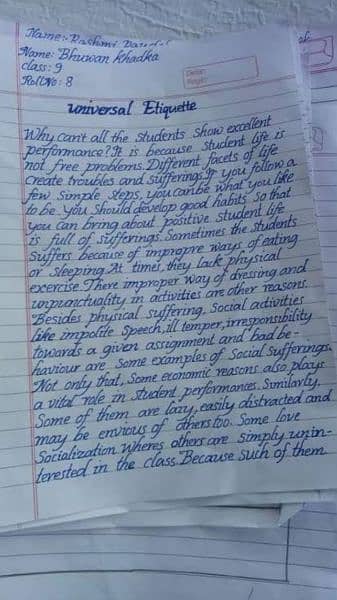 Name:- Rashmi
Name: Bhuwan Khadka
class: 9
RollNo: 8
Date:
Page:
universal Etiquette
Why can't all the students show excellent
performance? It is because student life is
not free problems. Different facets of life
create troubles and sufferings. If you follow a
few simple steps, you can be what you like
to be. You should develop good habits so that
you can bring about positive student life
is full of sufferings. Sometimes the students
suffers because of impropre ways of eating
or sleeping. At times, they lack physical
excercise. There improper way of dressing and
unpunctuality in activities are other reasons.
"Besides physical suffering, Social activities
like impolite speech, ill temper, irresponsibility
towards a given assignment and bad be-
haviour are some examples of Social sufferings.
Not only that, some economic reasons also plays
a vital role in student performances. Similarly,
Some of them are lazy, easily distracted and
may be envious of others too. Some love
Socialization wheres others are simply unin-
terested in the class." Because such of them